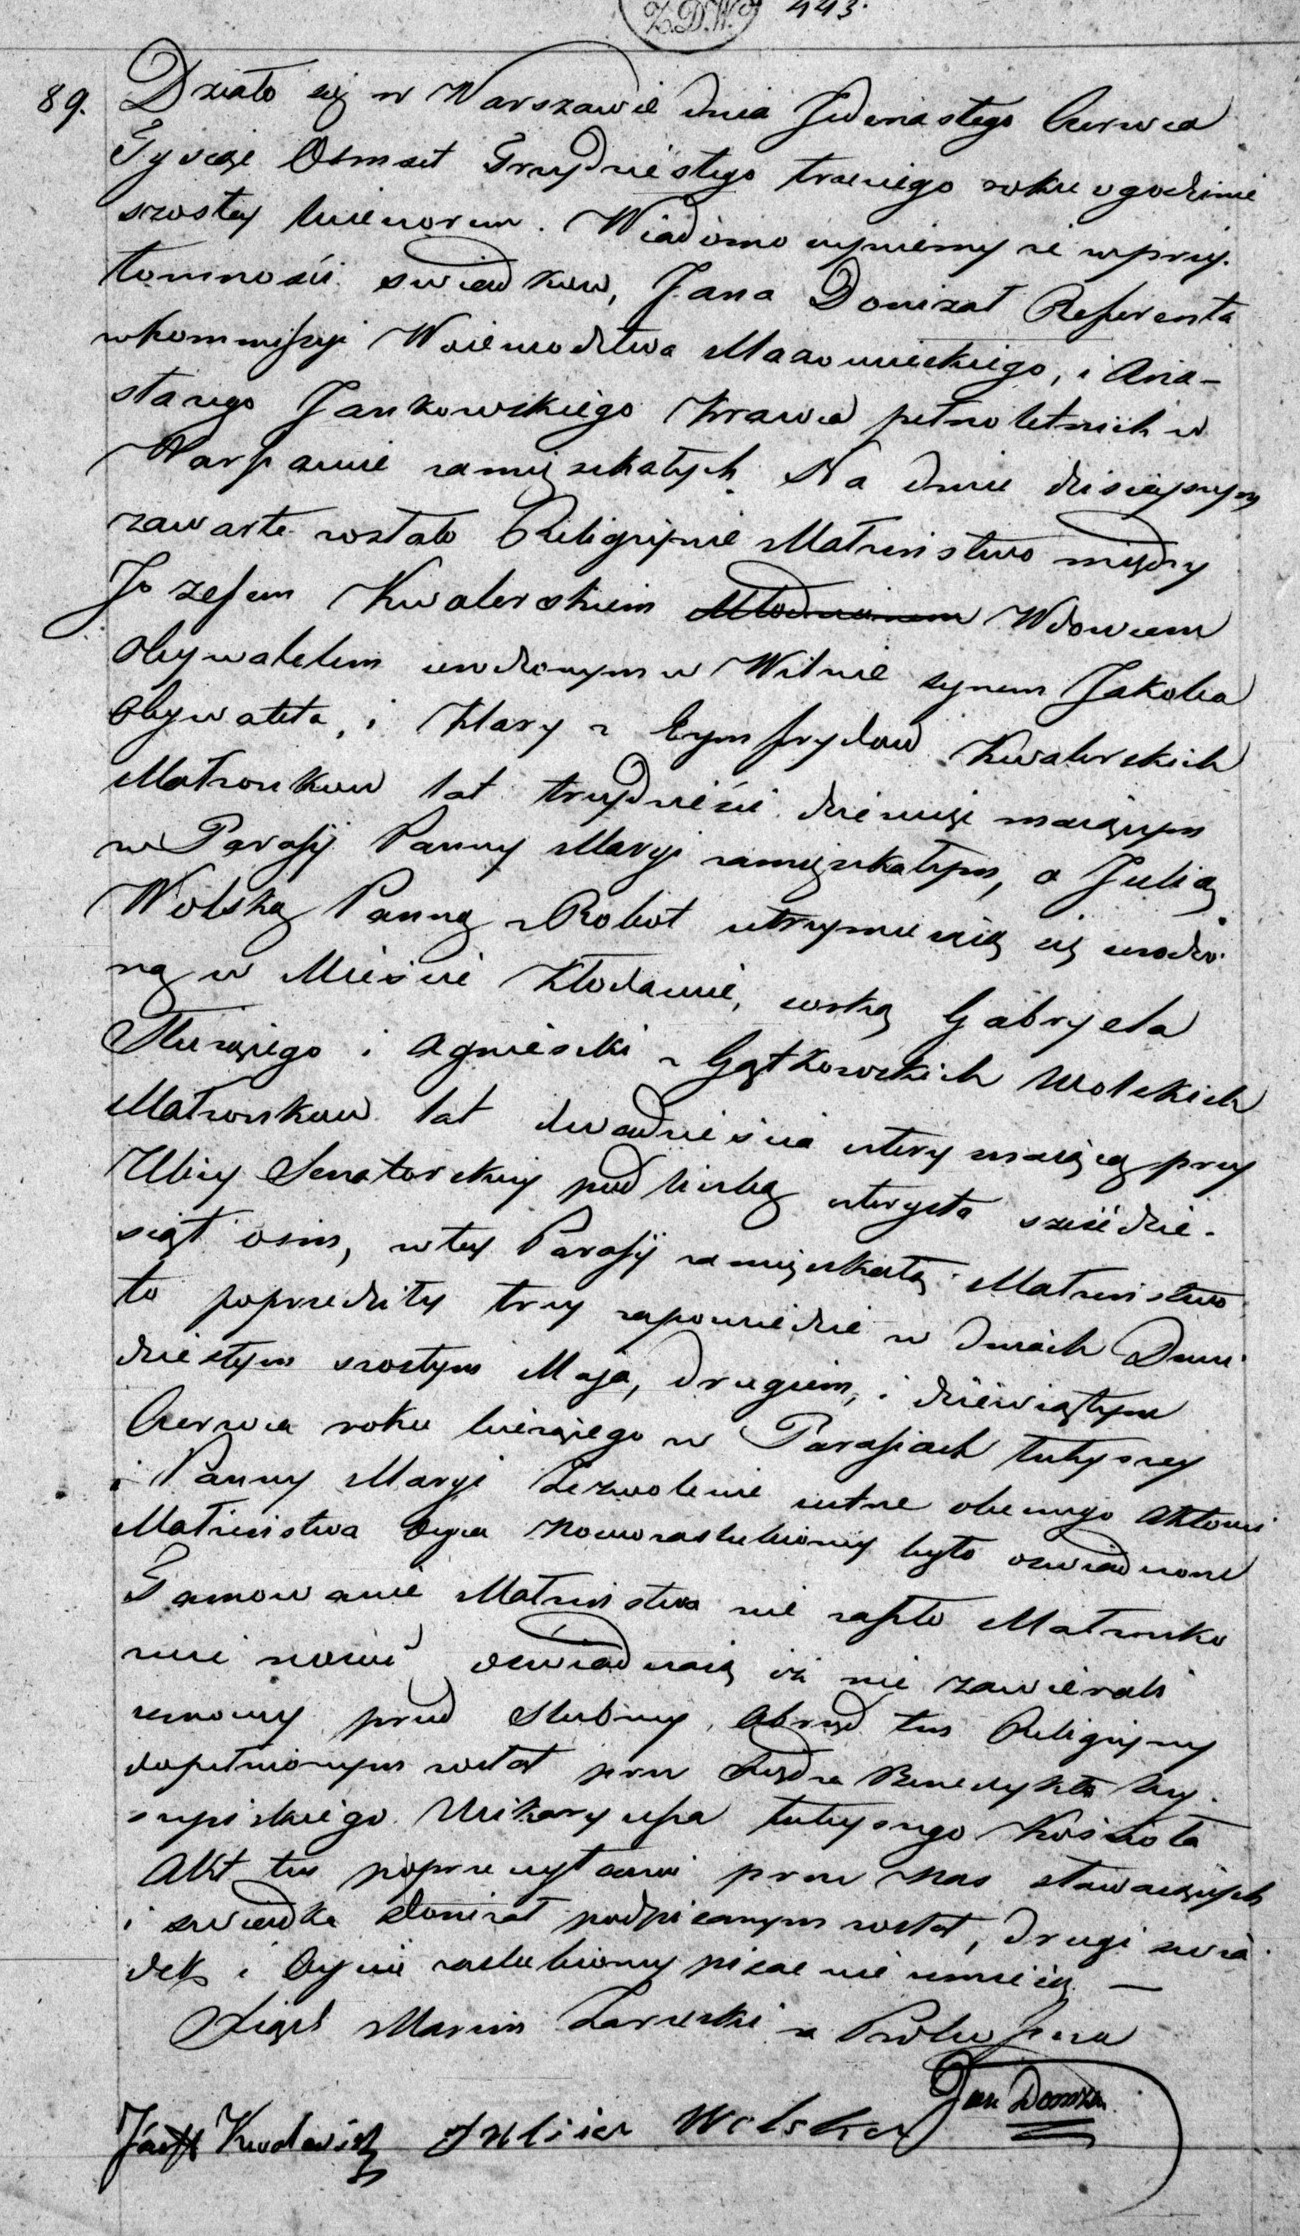 Z.D.W. 443.
89. Działo się w Warszawie dnia Jedenastego Czerwca
Tysiąc Osmset Trzydziestego trzeciego roku o godzinie
szostey wieczorem. Wiadomo czyniemy że w przy-
tomności swiadkow, Jana Donizat Referenta
w kommissyi Woiewodztwa Mazowieckiego, i
stazego Jankowskiego Krawca pełnoletnich w
Warszawie zamięszkałych. Na dniu dzisieyszym
zawarte zostało Religiyne Małżeństwo między
Jozefem Kwalerskiem Młodzianem Wdowcem
Obywatelem urodzonym w Wilnie synem Jakoba
Obywatela, i Klary z Kwalerskich
Małżonkow lat trzydzieści dziewięć maiącym
w Parafij Panny Maryi zamięszkałym, a Julią
Wolską Panną z Robot utrzymuiącą się urodzo-
ną w Mieście Kłodawie, corką Gabryela
Służącego i Agnieszki z Gątkowskich Wolskich
Małżonkow lat dwadzieścia cztery maiącą przy
Ulicy Senatorskiey pod liczbą czterysta sześćdzie-
siąt osm, w tey Parafij zamięszkałą. Małżeństwo
to poprzedziły trzy zapowiedzie w dniach Dwu-
dziestym szostym Maja, drugiem, i dziewiątym
Czerwca roku bieżącego w Parafiach tuteyszey
i Panny Maryi Zezwolenie ustne obecnego Aktowi
Małżeństwa Oyca Nowozaslubioney było oswiadczone
Tamowanie Małżeństwa nie zaszło Małżonko
wie nowi oswiadczaią iż nie zawierali
umowy przed slubney. Obrząd ten Religiyny
dopełnionym został przez Xiędza Benedykta
Wikaryusza tuteyszego Kościoła
Akt ten po przeczytaniu przez Nas stawaiących
i swiadka Donizat podpisanym został, drugi swia-
dek i Oyciec zaslubioney pisac nie umieią —
Xiądz Marcin Zarzecki za Proboszcza
Jan Donizat
Józeff Julia Wolska